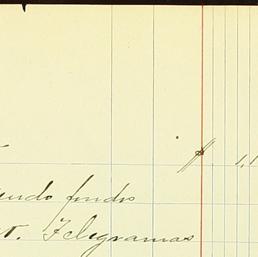 $ 1,1
undo fondo
t. Telegramas